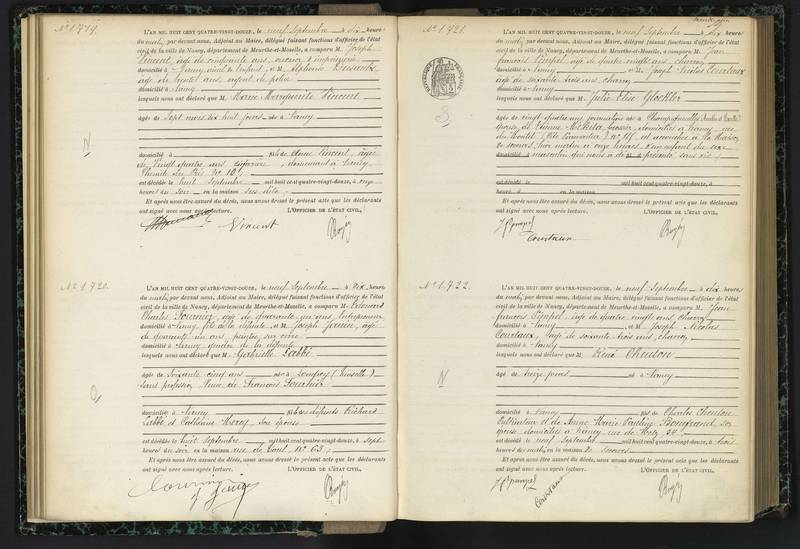 N° 1719.
L'AN MIL HUIT CENT QUATRE-VINGT-DOUZE, le neuf Septembre à dix heures
du matin, par devant nous, Adjoint au Maire, délégué faisant fonctions d'officier de l'état
civil de la ville de Nancy, département de Meurthe-et-Moselle, a comparu M. Joseph
Vincent, âgé de cinquante ans, ouvrier d'imprimerie
domicilié à Nancy, oncle de l'enfant, et M. Alphonse
âgé de trente ans, agent de police
domicilié à Nancy
lesquels nous ont déclaré que M. Marie Marguerite Vincent
âgée de Sept mois dix huit jours née à Nancy
domicilié à fille de Anne Vincent, âgée
de vingt quatre ans, demeurant à Nancy
Chemin des Prés N° 10
est décédée le huit septembre mil huit cent quatre-vingt-douze, à onze
heures du soir en la maison sus dite
Et après nous être assuré du décès, nous avons dressé le présent acte que les déclarants
ont signé avec nous après lecture. L'OFFICIER DE L'ÉTAT CIVIL,
Vincent
N° 1720.
L'AN MIL HUIT CENT QUATRE-VINGT-DOUZE, le neuf Septembre à dix heures
du matin, par devant nous, Adjoint au Maire, délégué faisant fonctions d'officier de l'état
civil de la ville de Nancy, département de Meurthe-et-Moselle, a comparu M. Edouard
Charles Fournier, âgé de quarante un ans, Entrepreneur
domicilié à Nancy, fils de la défunte, et M. Joseph âgé
de quarante un ans, peintre sur verre
domicilié à Nancy, gendre de la défunte
lesquels nous ont déclaré que M. Gabrielle Labbé
âgée de soixante cinq ans née à (Moselle)
sans profession Veuve de François
domiciliée à Nancy fille des défunts Richard
Labbé et Catherine son épouse
est décédée le huit septembre mil huit cent quatre-vingt-douze, à sept
heures du soir en la maison rue de Toul, N° 63
Et après nous être assuré du décès, nous avons dressé le présent acte que les déclarants
ont signé avec nous après lecture. L'OFFICIER DE L'ÉTAT CIVIL,
N° 1721.
L'AN MIL HUIT CENT QUATRE-VINGT-DOUZE, le neuf Septembre à dix heures
du matin, par devant nous, Adjoint au Maire, délégué faisant fonctions d'officier de l'état
civil de la ville de Nancy, département de Meurthe-et-Moselle, a comparu M. Jean
François âgé de quatre vingts ans, charron
domicilié à Nancy et M. Joseph Nicolas Courtaux
âgé de soixante trois ans, charron
domicilié à Nancy
lesquels nous ont déclaré que M. Julie Elise Glockler
âgée de vingt quatre ans, journalière née à Champenoux
épouse de Etienne domiciliés à Nancy, rue
est accouchée à la Maison
de Secours, hier matin à onze heures d'un enfant du sexe
masculin qui nous a été présenté sans vie
est décédé le mil huit cent quatre-vingt-douze, à
heures d en la maison
Et après nous être assuré du décès, nous avons dressé le présent acte que les déclarants
ont signé avec nous après lecture. L'OFFICIER DE L'ÉTAT CIVIL,
Courtaux
N° 1722.
L'AN MIL HUIT CENT QUATRE-VINGT-DOUZE, le neuf Septembre à dix heures
du matin, par devant nous, Adjoint au Maire, délégué faisant fonctions d'officier de l'état
civil de la ville de Nancy, département de Meurthe-et-Moselle, a comparu M. Jean
François âgé de quatre vingts ans, charron
domicilié à Nancy et M. Joseph Nicolas
Courtaux, âgé de soixante trois ans, charron
domicilié à Nancy
lesquels nous ont déclaré que M. René
âgé de treize jours né à Nancy
domicilié à Nancy fils de Charles
et de Anne Marie Pauline son
épouse domiciliés à Nancy, rue de Metz
est décédé le neuf septembre mil huit cent quatre-vingt-douze, à trois
heures du matin, en la maison de Secours
Et après nous être assuré du décès, nous avons dressé le présent acte que les déclarants
ont signé avec nous après lecture. L'OFFICIER DE L'ÉTAT CIVIL,
Courtaux